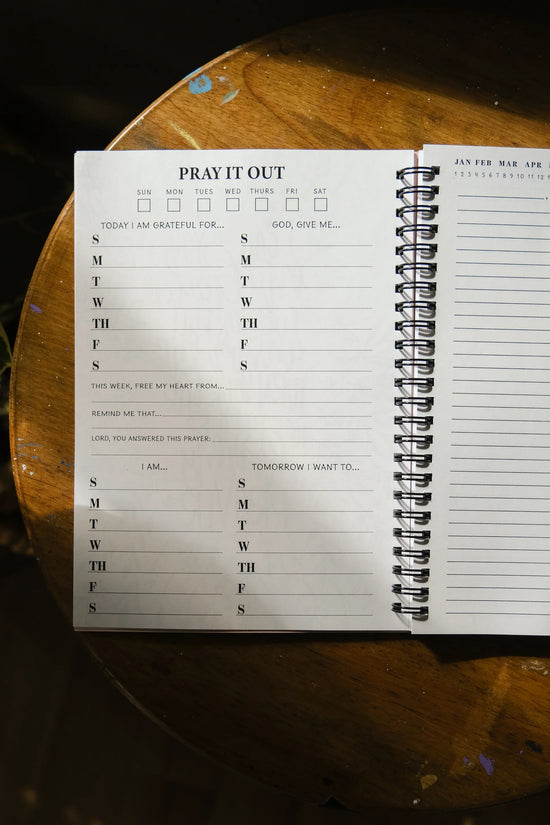 PRAY IT OUT
SUN MON TUES WED THURS FRI SAT
TODAY I AM GRATEFUL FOR... GOD, GIVE ME...
S S
M M
T T
W W
TH TH
F F
S S
THIS WEEK, FREE MY HEART FROM...
REMIND ME THAT...
LORD, YOU ANSWERED THIS PRAYER:
I AM... TOMORROW I WANT TO...
S S
M M
T T
W W
TH TH
F F
S S
JAN FEB MAR APR
1 2 3 4 5 6 7 8 9 10 11 12